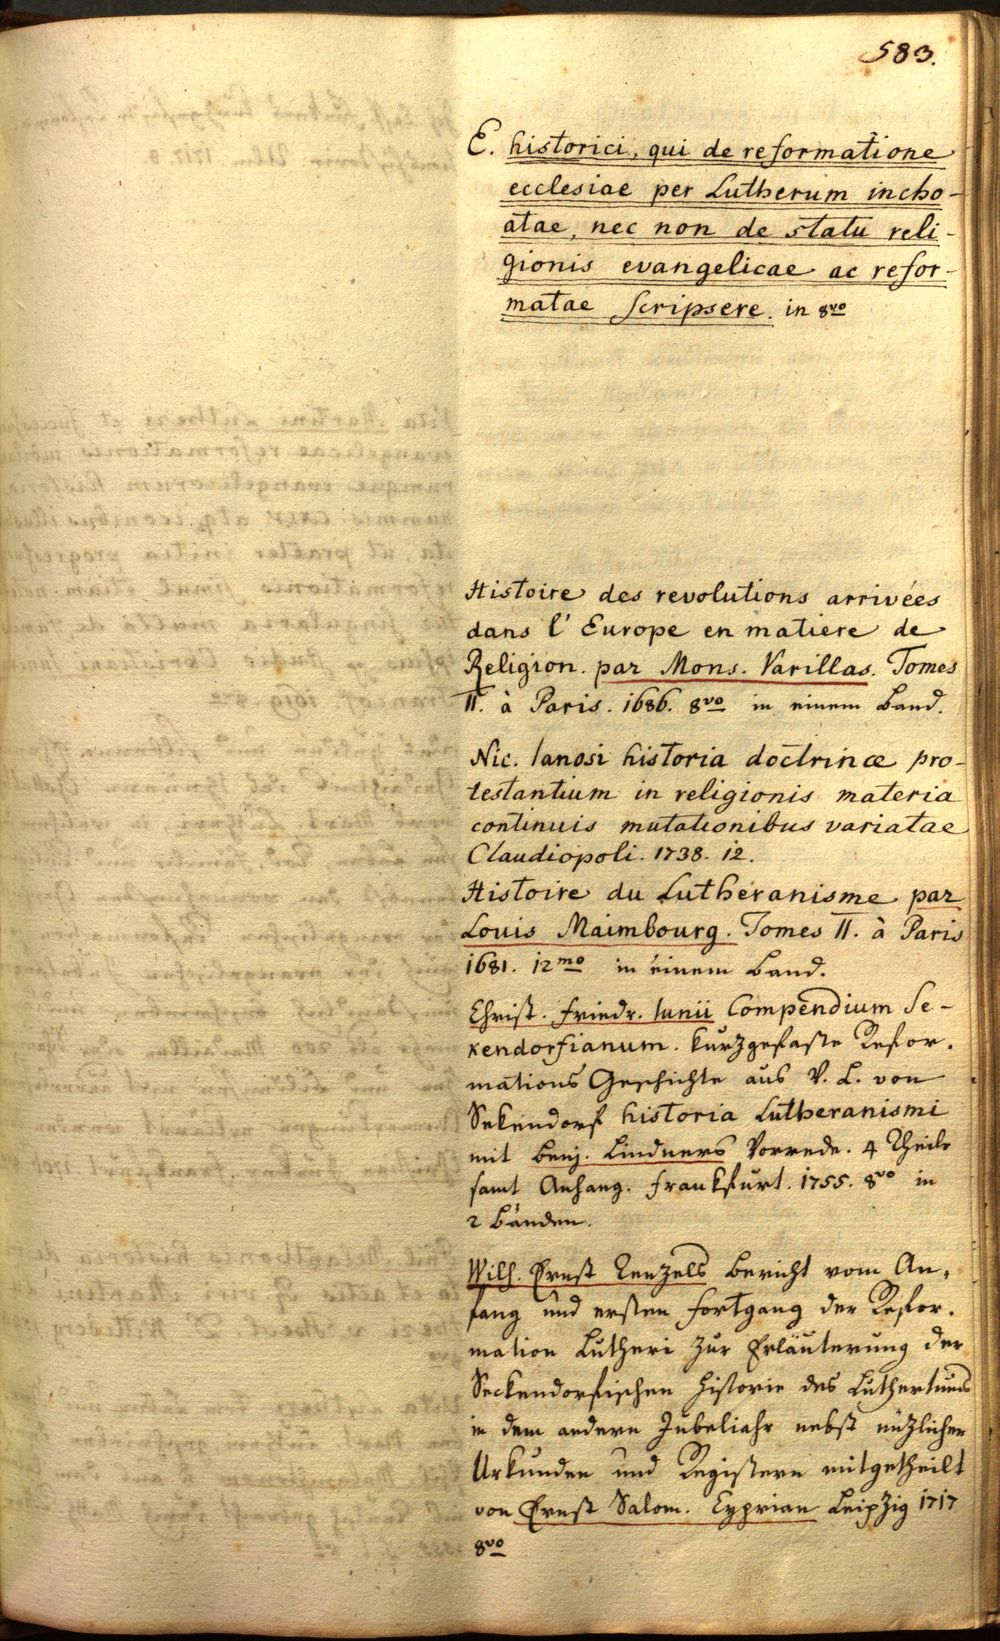 583.
E. historici, qui de reformatione
ecclesiae per Lutherum incho-
atae, nec non de statu reli-
gionis evangelicae ac refor-
matae scripsere. in 8vo
Histoire des revolutions arrivées
dans l'Europe en matiere de
Religion. par Mons. Varillas. Tomes
II. à Paris. 1686. 8vo in einem Band.
Nic. Ianosi historia doctrinae pro-
testantium in religionis materia
continuis mutationibus variatae
Claudiopoli. 1738. 12.
Histoire du Lutheranisme par
Louis Maimbourg. Tomes II. à Paris
1681. 12mo in einem Band.
Christ. Friedr. Iunii Compendium Se-
kendorfianum. kurzgefaste Refor-
mations Geschichte aus V. L. von
Sekendorf historia Lutheranismi
mit Benj. Lindners Vorrede. 4 Theile
samt Anhang. Frankfurt. 1755. 8vo in
2 Bänden.
Wilh. Ernst Tenzels Bericht vom An-
fang und ersten Fortgang der Refor-
mation Lutheri zur Erläuterung der
Seckendorfischen Historie des Luthertums
in dem andern Jubeljahr nebst nüzlichen
Urkunden und Registern mitgetheilt
von Ernst Salom. Cyprian Leipzig 1717
8vo